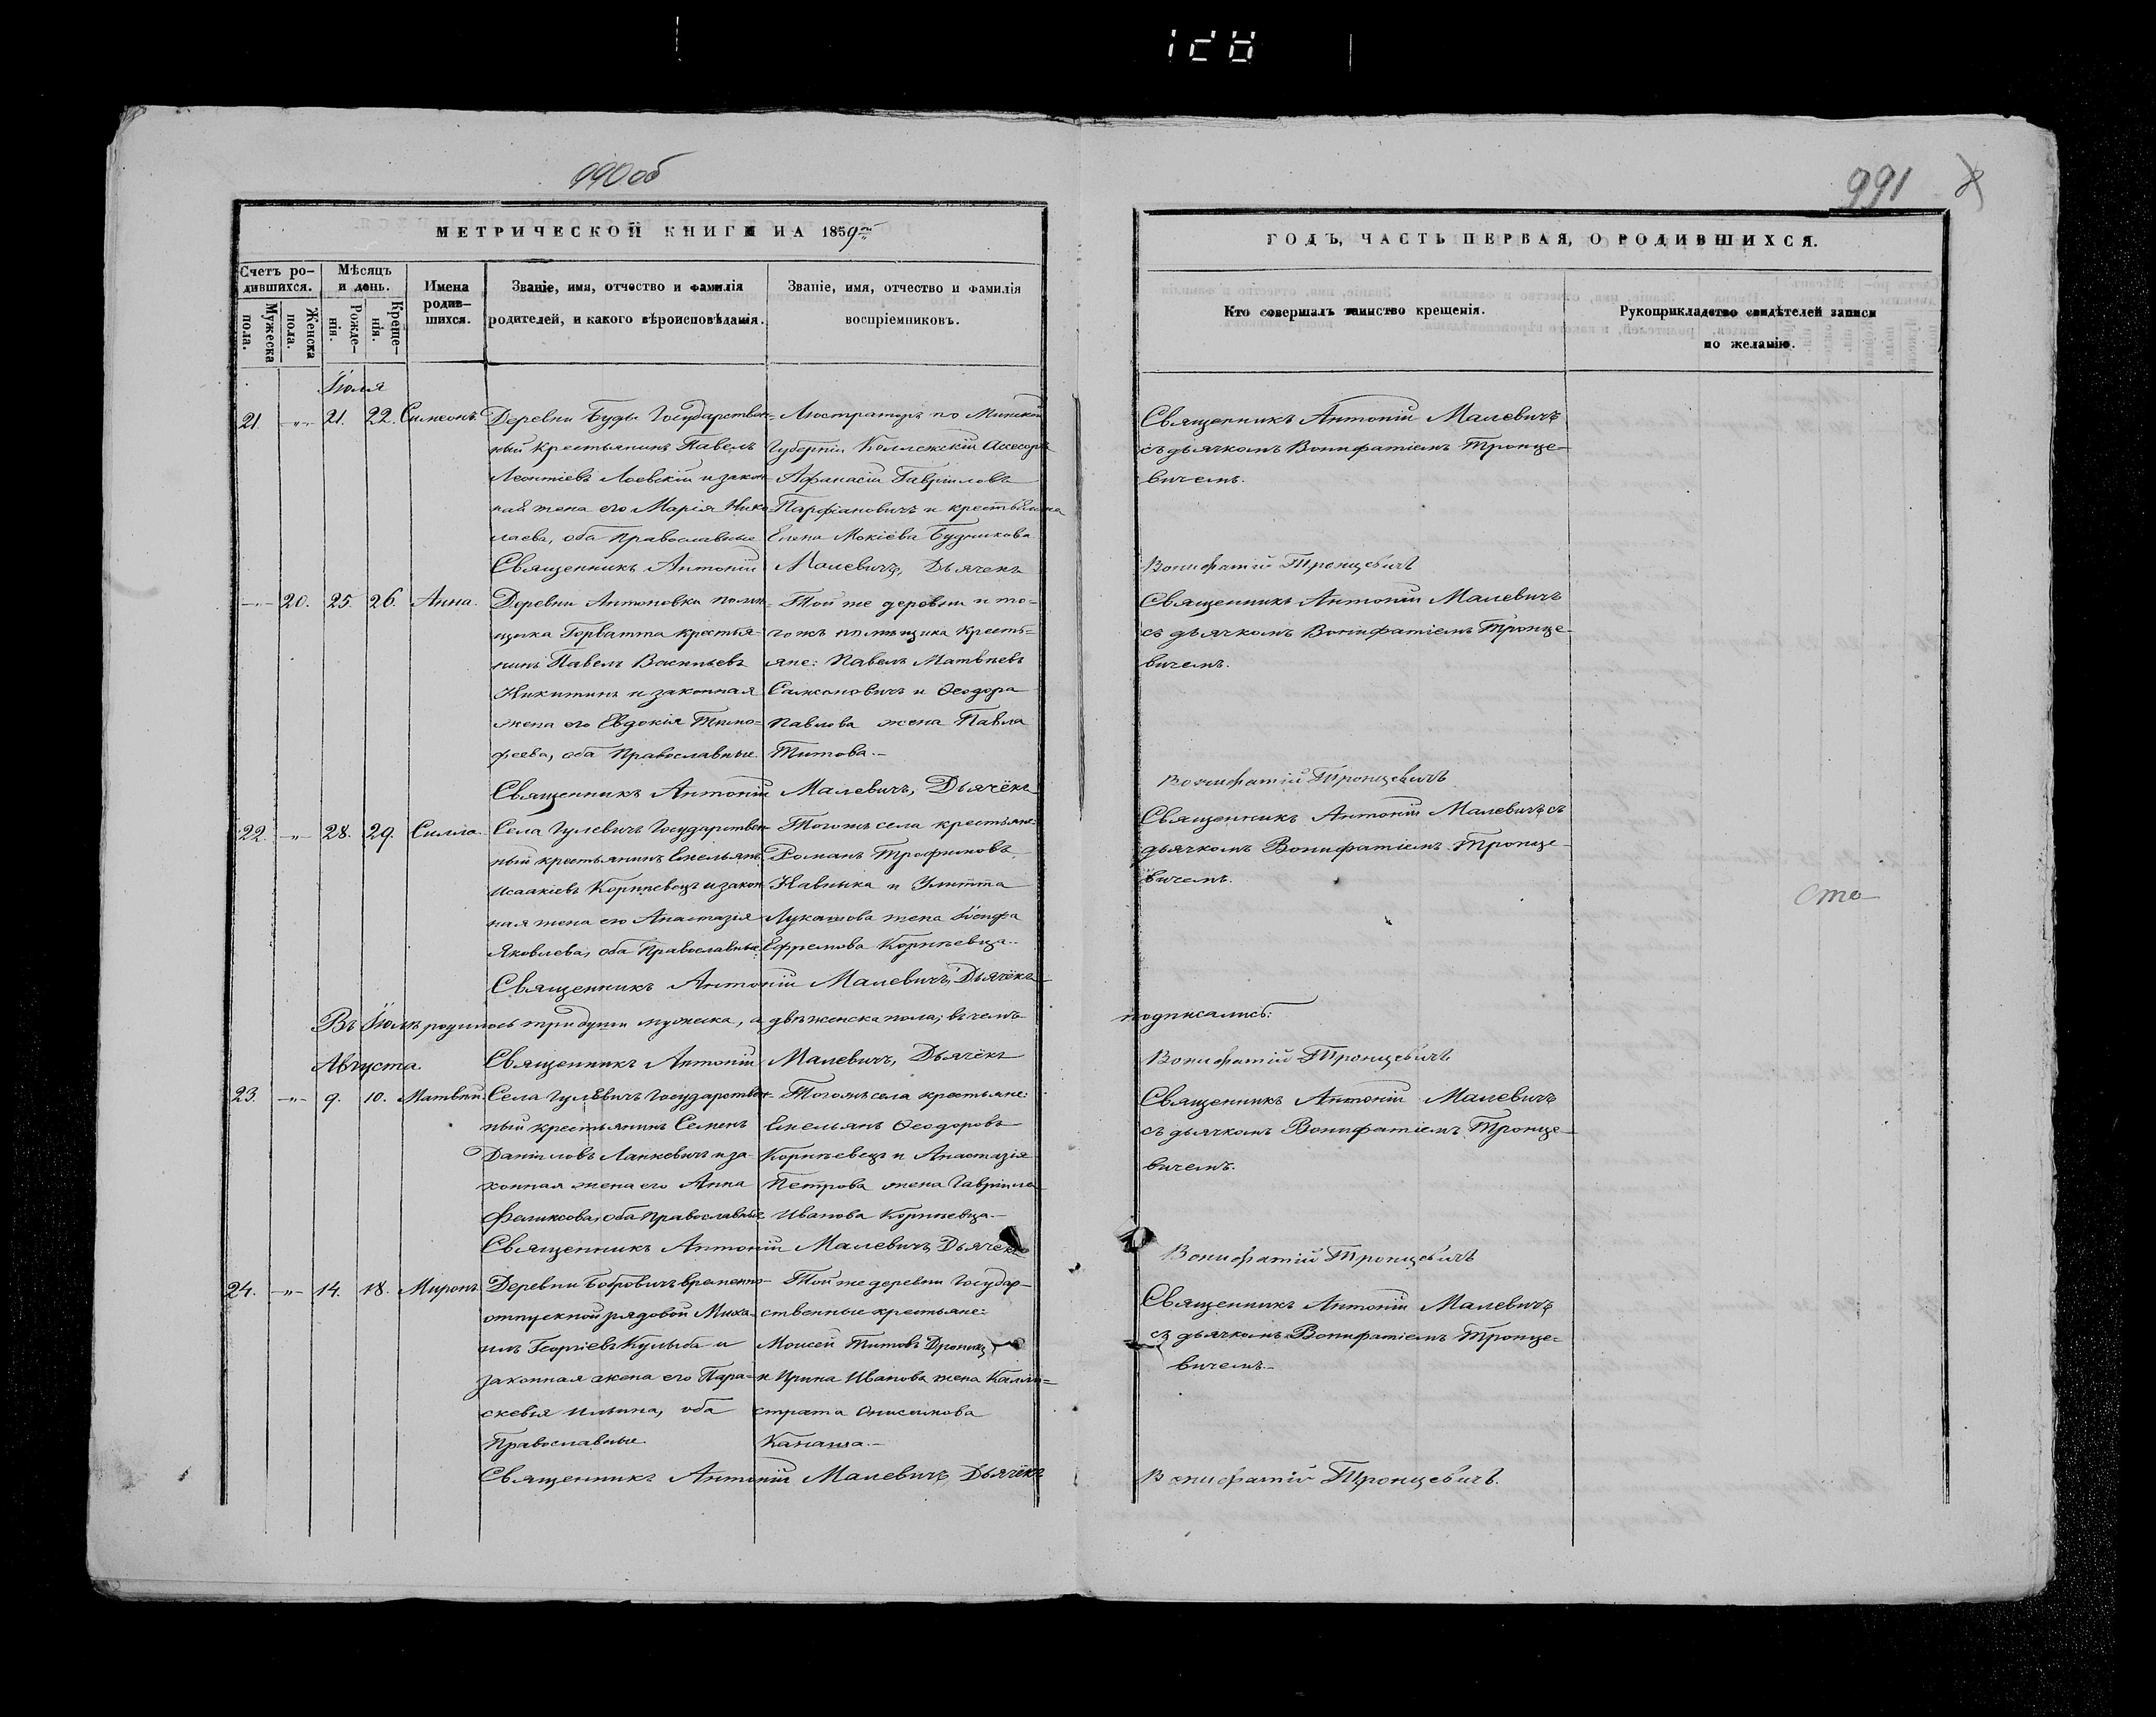 990 об
991
МЕТРИЧЕСКОЙ КНИГИ НА 1859й
ГОДЪ, ЧАСТЬ ПЕРВАЯ, О РОДИВШИХСЯ.
Счетъ ро-
дившихся.
Мужеска
пола.
Женска
пола.
Мѣсяцъ
и день.
Рожде-
нія.
Креще-
нія.
Имена
родив-
шихся.
Званіе, имя, отчество и фамилія
родителей, и какого вѣроисповѣданія.
Званіе, имя, отчество и фамилія
воспріемниковъ.
Кто совершалъ таинство крещенія.
Рукоприкладство свидѣтелей записи
по желанію.
Іюля
21. -"- 21. 22. Симеонъ.
Деревни Буды Государствен-
ный крестьянинъ Павелъ
Леонтіевъ Лоевскій и закон-
ная жена его Марія Нико
лаева, оба Православные
Люстраторъ по Минской
Губерніи Коллежскій Ассесоръ
Афанасій Гавріиловъ
Парфіановичъ и крестьянка
Елена Мокіева Будникова
Священникъ Антоній Малевичъ
съ дьячкомъ Вонифатіемъ Тронце-
вичемъ.
Священникъ Антоній Малевичъ, Дьячекъ Вонифатій Тронцевичъ
-"- 20. 25. 26. Анна.
Деревни Антоновка помѣ-
щика Горватта крестья-
нинъ Павелъ Васильевъ
Никитинъ и законная
жена его Евдокія Тимо-
феева, оба Православные
Той же деревни и то-
гожъ помѣщика кресть-
яне: Павелъ Матвѣевъ
Самсоновичъ и Ѳеодора
Павлова жена Павла
Титова.-
Священникъ Антоній Малевичъ
съ дьячкомъ Вонифатіемъ Тронце-
вичемъ.
Священникъ Антоній Малевичъ, Дьячёкъ Вонифатій Тронцевичъ
22. -"- 28. 29. Силла.
Села Гулевичъ Государствен-
ный крестьянинъ Емельянъ
Исаакіевъ Корнѣевецъ и закон
ная жена его Анастазія
Яковлева, оба Православные
Тогожъ села крестьяне:
Романъ Трофимовъ
Навныка и Улитта
Лукашова жена Іосифа
Ефремова Корнѣевца..
Священникъ Антоній Малевичъ съ
дьячкомъ Вонифатіемъ Тронце-
вичемъ.
сто
Священникъ Антоній Малевичъ, Дьячёкъ
Въ Іюлѣ родилось три души мужеска, а двѣ женска пола; въ чемъ подписались:
Священникъ Антоній Малевичъ, Дьячёкъ Вонифатій Тронцевичъ
Августа.
23. -"- 9. 10. Матвѣй.
Села Гулевичъ Государствен-
ный крестьянинъ Семенъ
Даніиловъ Ланкевичъ и за-
конная жена его Анна
Феликсова, оба Православные
Тогожъ села крестьяне:
Емельянъ Ѳеодоровъ
Корнѣевецъ и Анастазія
Петрова жена Гавріила
Иванова Корнѣевца.-
Священникъ Антоній Малевичъ
съ дьячкомъ Вонифатіемъ Тронце-
вичемъ.
Священникъ Антоній Малевичъ, Дьячёкъ Вонифатій Тронцевичъ
24. -"- 14. 18. Миронъ.
Деревни Бобровичъ временно-
отпускной рядовой Миха-
илъ Георгіевъ Кульба и
законная жена его Пара-
скевія Ильина, оба
Православные.
Той же деревни Государ-
ственные крестьяне:
Моисей Титовъ Дроницъ
и Ирина Иванова жена Калли-
страта Онисимова
Канаша.-
Священникъ Антоній Малевичъ
съ дьячкомъ Вонифатіемъ Тронце-
вичемъ.-
Священникъ Антоній Малевичъ, Дьячёкъ Вонифатій Тронцевичъ.